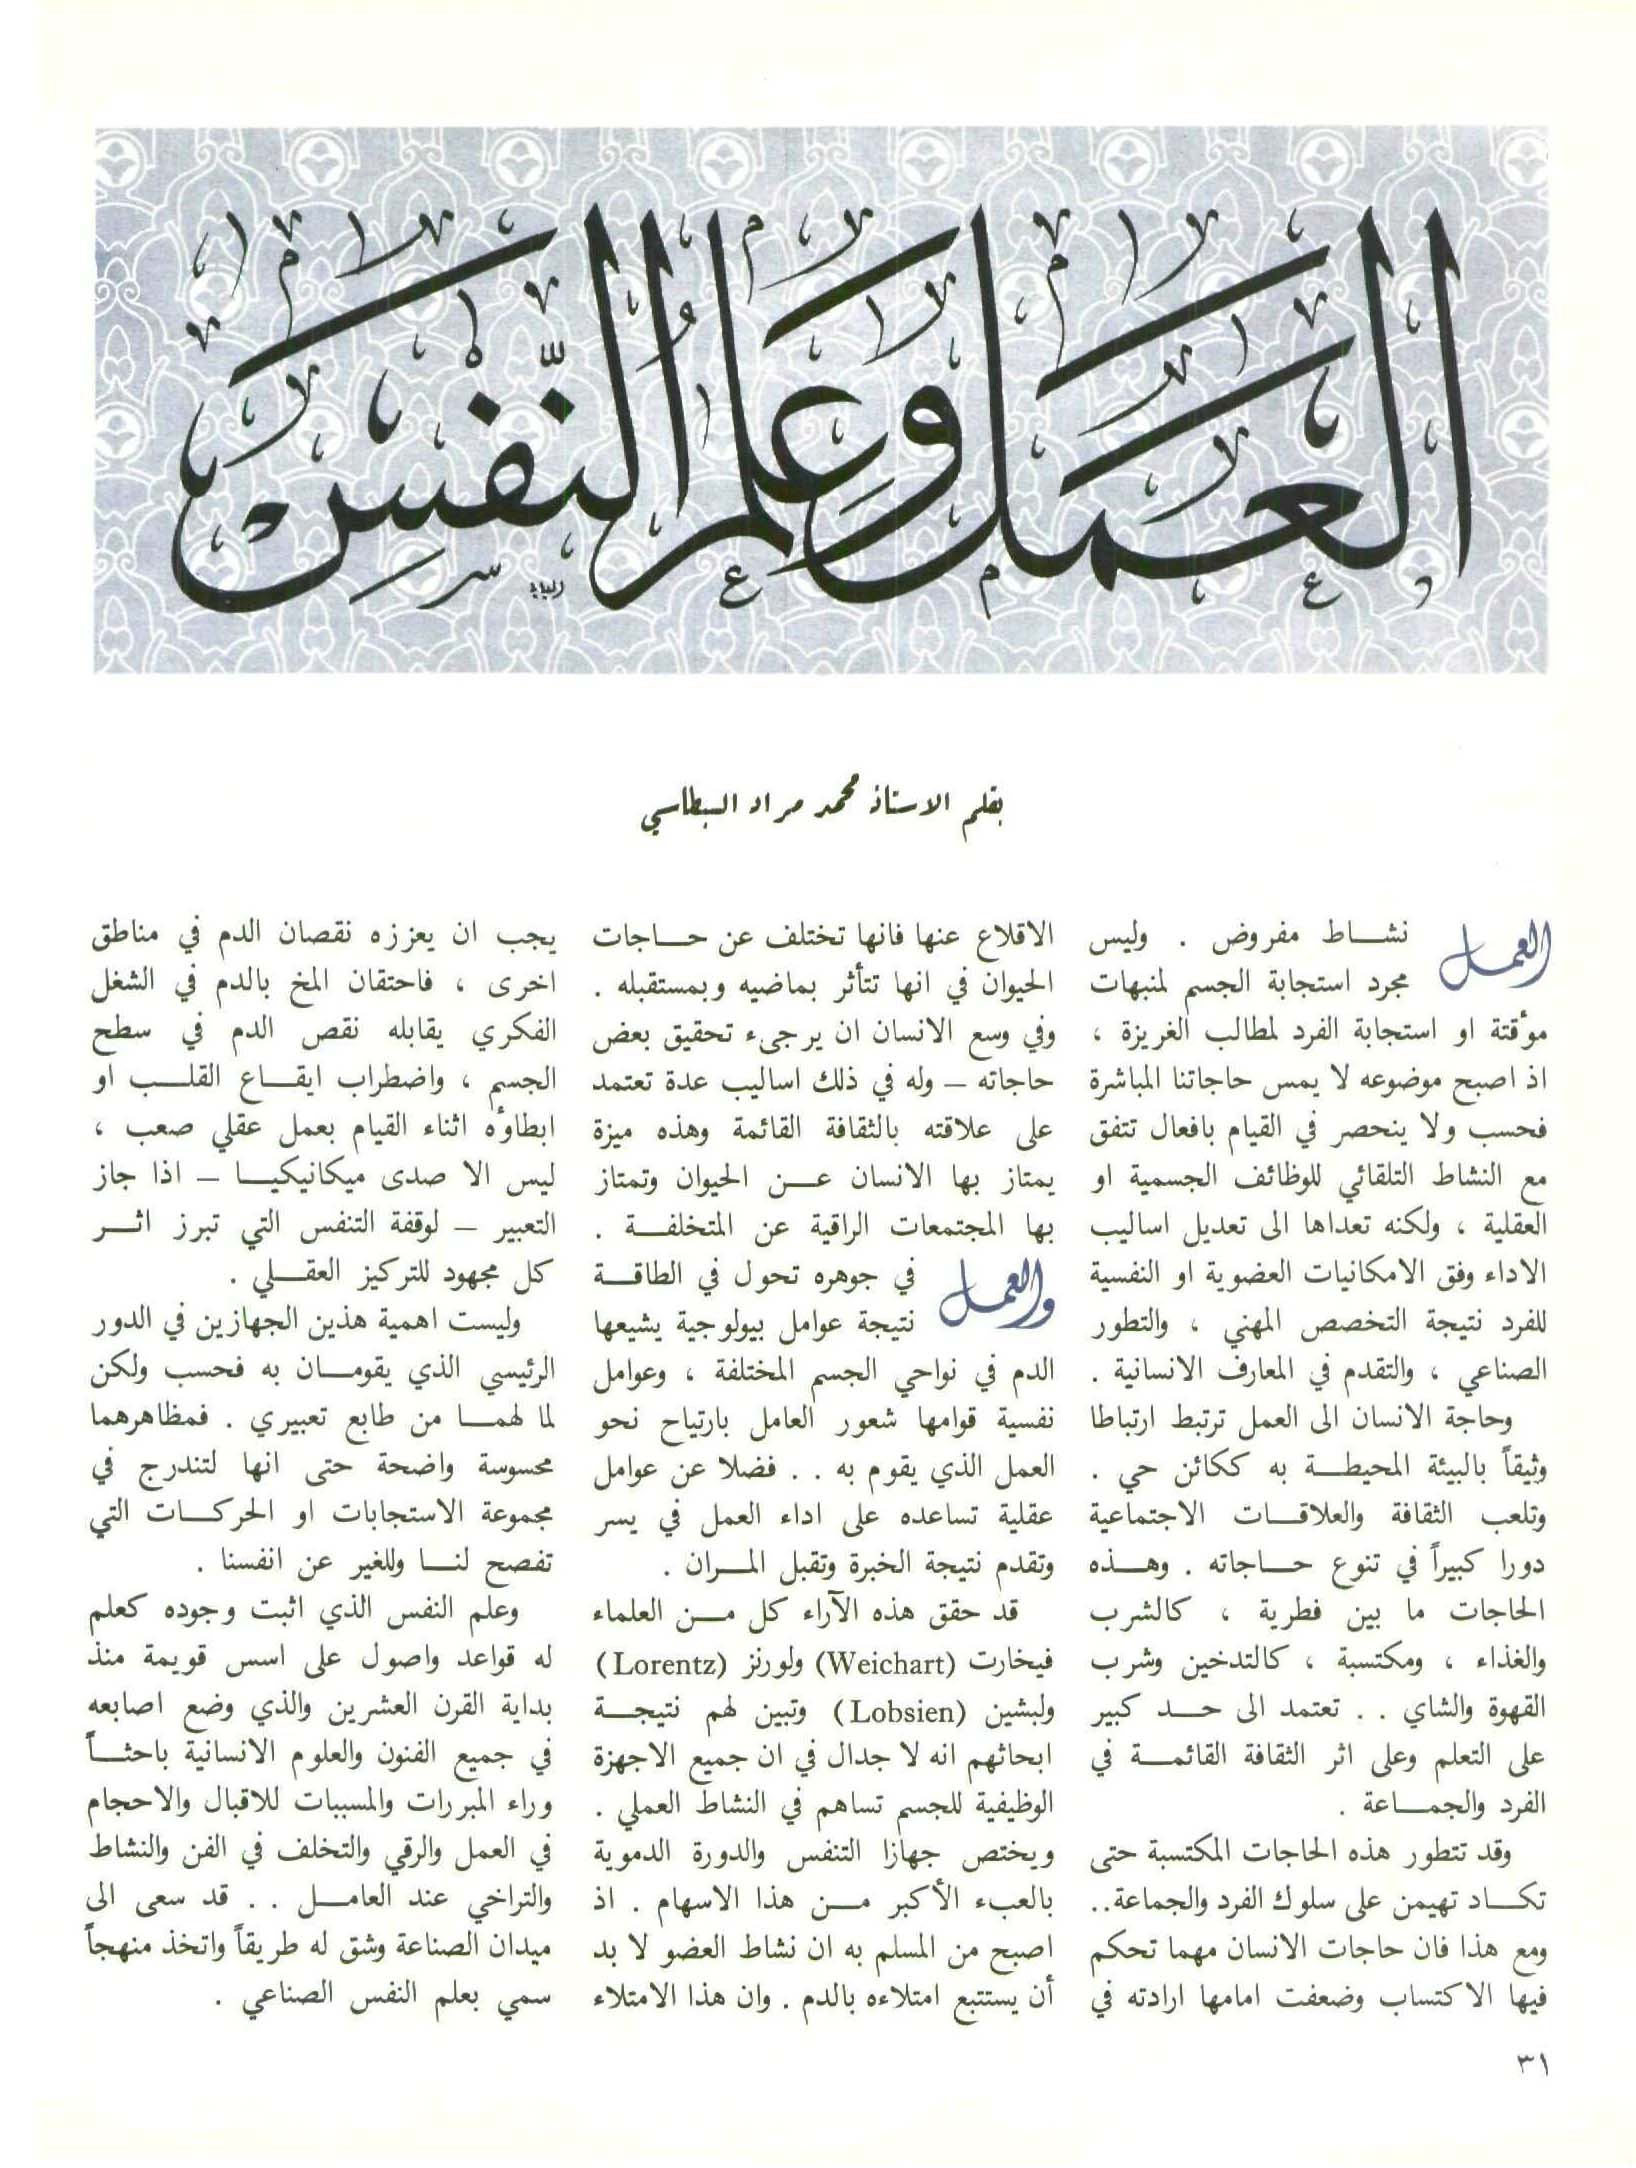 العمل وعلم النفس
بقلم الاستاذ محمد مراد السبطاسي
العمل نشاط مفروض . وليس
مجرد استجابة الجسم لمنبهات
موٴقتة او استجابة الفرد لمطالب الغريزة ،
اذ اصبح موضوعه لا يمس حاجاتنا المباشرة
فحسب ولا ينحصر في القيام بافعال تتفق
مع النشاط التلقائي للوظائف الجسمية او
العقلية ، ولكنه تعداها الى تعديل اساليب
الاداء وفق الامكانيات العضوية او النفسية
للفرد نتيجة التخصص المهني ، والتطور
الصناعي ، والتقدم في المعارف الانسانية .
وحاجة الانسان الى العمل ترتبط ارتباطا
وثيقاً بالبيئة المحيطة به ككائن حي .
وتلعب الثقافة والعلاقات الاجتماعية
دورا كبيراً في تنوع حاجاته . وهذه
الحاجات ما بين فطرية ، كالشرب
والغذاء ، ومكتسبة ، كالتدخين وشرب
القهوة والشاي . . تعتمد الى حد كبير
على التعلم وعلى اثر الثقافة القائمة في
الفرد والجماعة .
وقد تتطور هذه الحاجات المكتسبة حتى
تكاد تهيمن على سلوك الفرد والجماعة..
ومع هذا فان حاجات الانسان مهما تحكم
فيها الاكتساب وضعفت امامها ارادته في
الاقلاع عنها فانها تختلف عن حاجات
الحيوان في انها تتأثر بماضيه وبمستقبله .
وفي وسع الانسان ان يرجىء تحقيق بعض
حاجاته – وله في ذلك اساليب عدة تعتمد
على علاقته بالثقافة القائمة وهذه ميزة
يمتاز بها الانسان عن الحيوان وتمتاز
بها المجتمعات الراقية عن المتخلفة .
والعمل في جوهره تحول في الطاقة
نتيجة عوامل بيولوجية يشيعها
الدم في نواحي الجسم المختلفة ، وعوامل
نفسية قوامها شعور العامل بارتياح نحو
العمل الذي يقوم به . . فضلا عن عوامل
عقلية تساعده على اداء العمل في يسر
وتقدم نتيجة الخبرة وتقبل المران .
قد حقق هذه الآراء كل من العلماء
فيخارت (Weichart) ولورنز (Lorentz)
ولبشين (Lobsien) وتبين لهم نتيجة
ابحاثهم انه لا جدال في ان جميع الاجهزة
الوظيفية للجسم تساهم في النشاط العملي .
ويختص جهازا التنفس والدورة الدموية
بالعبء الأكبر من هذا الاسهام . اذ
اصبح من المسلم به ان نشاط العضو لا بد
أن يستتبع امتلاءه بالدم . وان هذا الامتلاء
يجب ان يعززه نقصان الدم في مناطق
اخرى ، فاحتقان المخ بالدم في الشغل
الفكري يقابله نقص الدم في سطح
الجسم ، واضطراب ايقاع القلب او
ابطاوٴه اثناء القيام بعمل عقلي صعب ،
ليس الا صدى ميكانيكيا – اذا جاز
التعبير – لوقفة التنفس التي تبرز اثر
كل مجهود للتركيز العقلي .
وليست اهمية هذين الجهازين في الدور
الرئيسي الذي يقومان به فحسب ولكن
لما لهما من طابع تعبيري . فمظاهرهما
محسوسة واضحة حتى انها لتندرج في
مجموعة الاستجابات او الحركات التي
تفصح لنا وللغير عن انفسنا .
وعلم النفس الذي اثبت وجوده كعلم
له قواعد واصول على اسس قويمة منذ
بداية القرن العشرين والذي وضع اصابعه
في جميع الفنون والعلوم الانسانية باحثاً
وراء المبررات والمسببات للاقبال والاحجام
في العمل والرقي والتخلف في الفن والنشاط
والتراخي عند العامل . . قد سعى الى
ميدان الصناعة وشق له طريقاً واتخذ منهجاً
سمي بعلم النفس الصناعي .
٣١